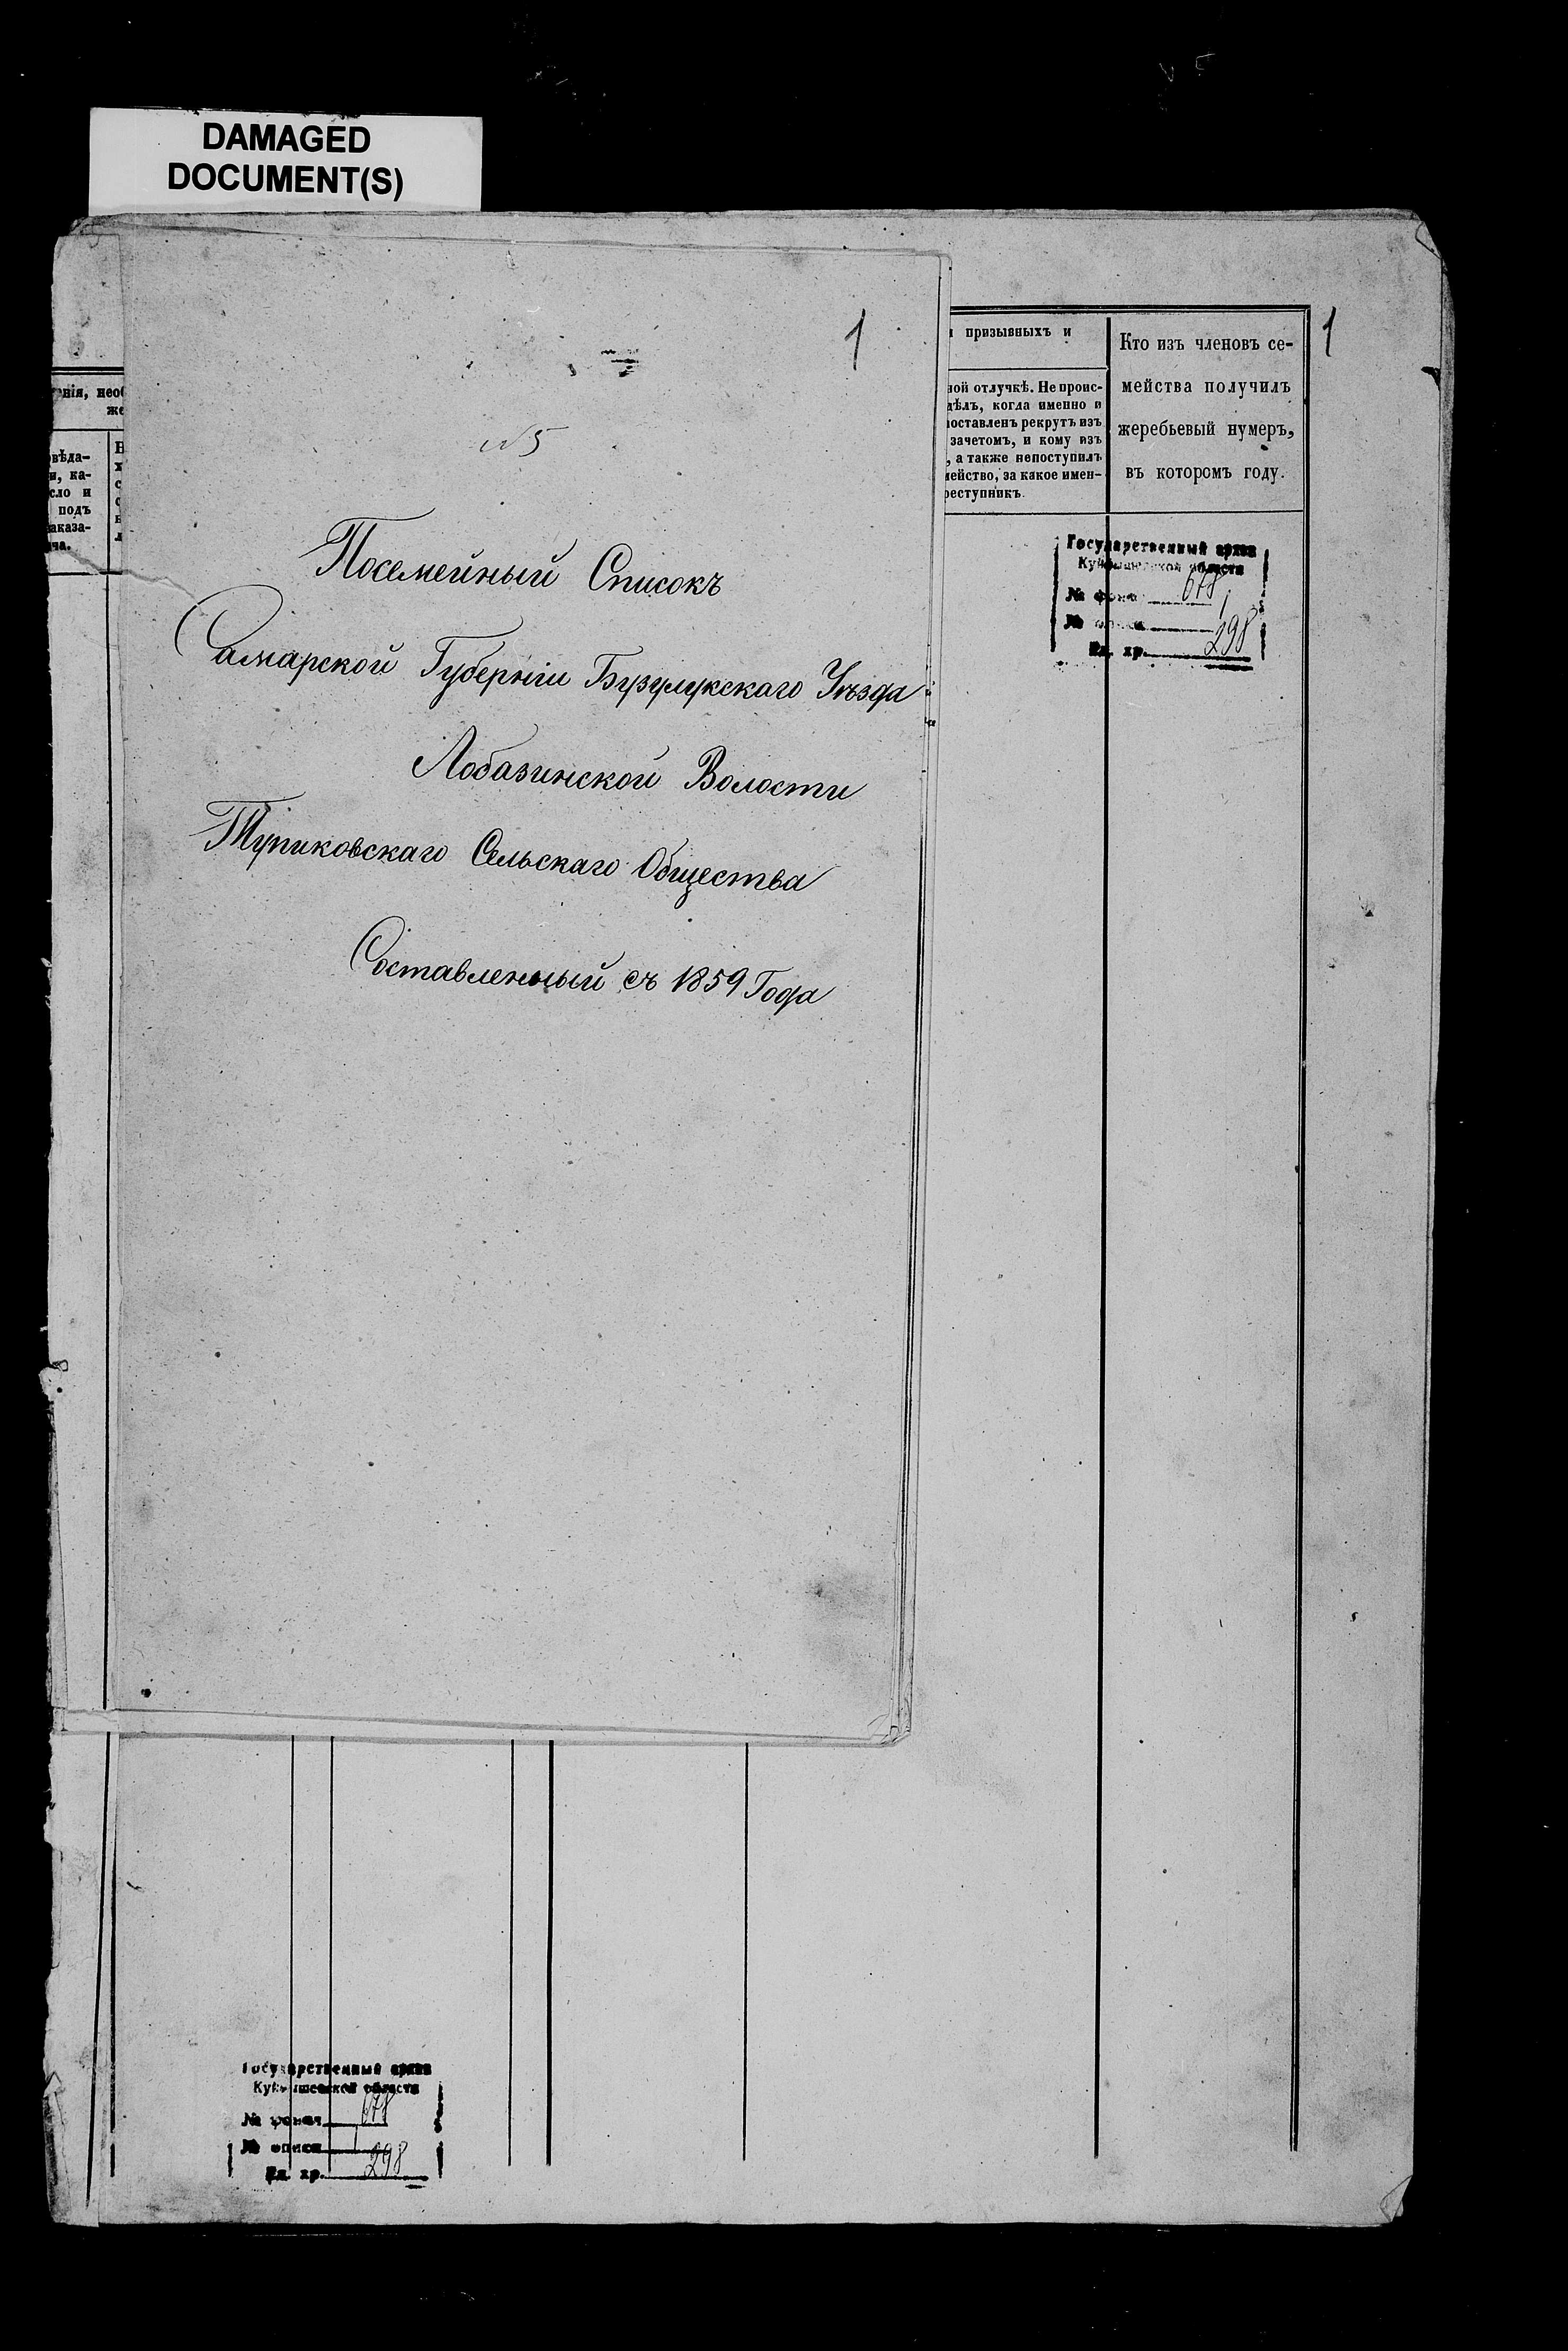 DAMAGED
DOCUMENT(S)
1
№ 5
Посемейный Списокъ
Самарской Губернiи Бузулукскаго Уѣзда
Лобазинской Волости
Тупиковскаго Сельскаго Общества
Составленный съ 1859 Года
призывныхъ и
ной отлучкѣ. Не проис-
дѣлъ, когда именно и
поставленъ рекрутъ изъ
зачетомъ, и кому изъ
, а также непоступилъ
мейство, за какое имен-
реступникъ.
Кто изъ членовъ се-
мейства получилъ
жеребьевый нумеръ,
въ которомъ году.
1
Государственный архив
Куйбышевской области
№ фонда 678
№ описи 1
Ед. хр. 298
енiя, необ
же
вѣда-
и, ка-
сло и
подъ
аказа-
ча.
Государственный архив
Куйбышевской области
№ фонда 678
№ описи 1
Ед. хр. 298